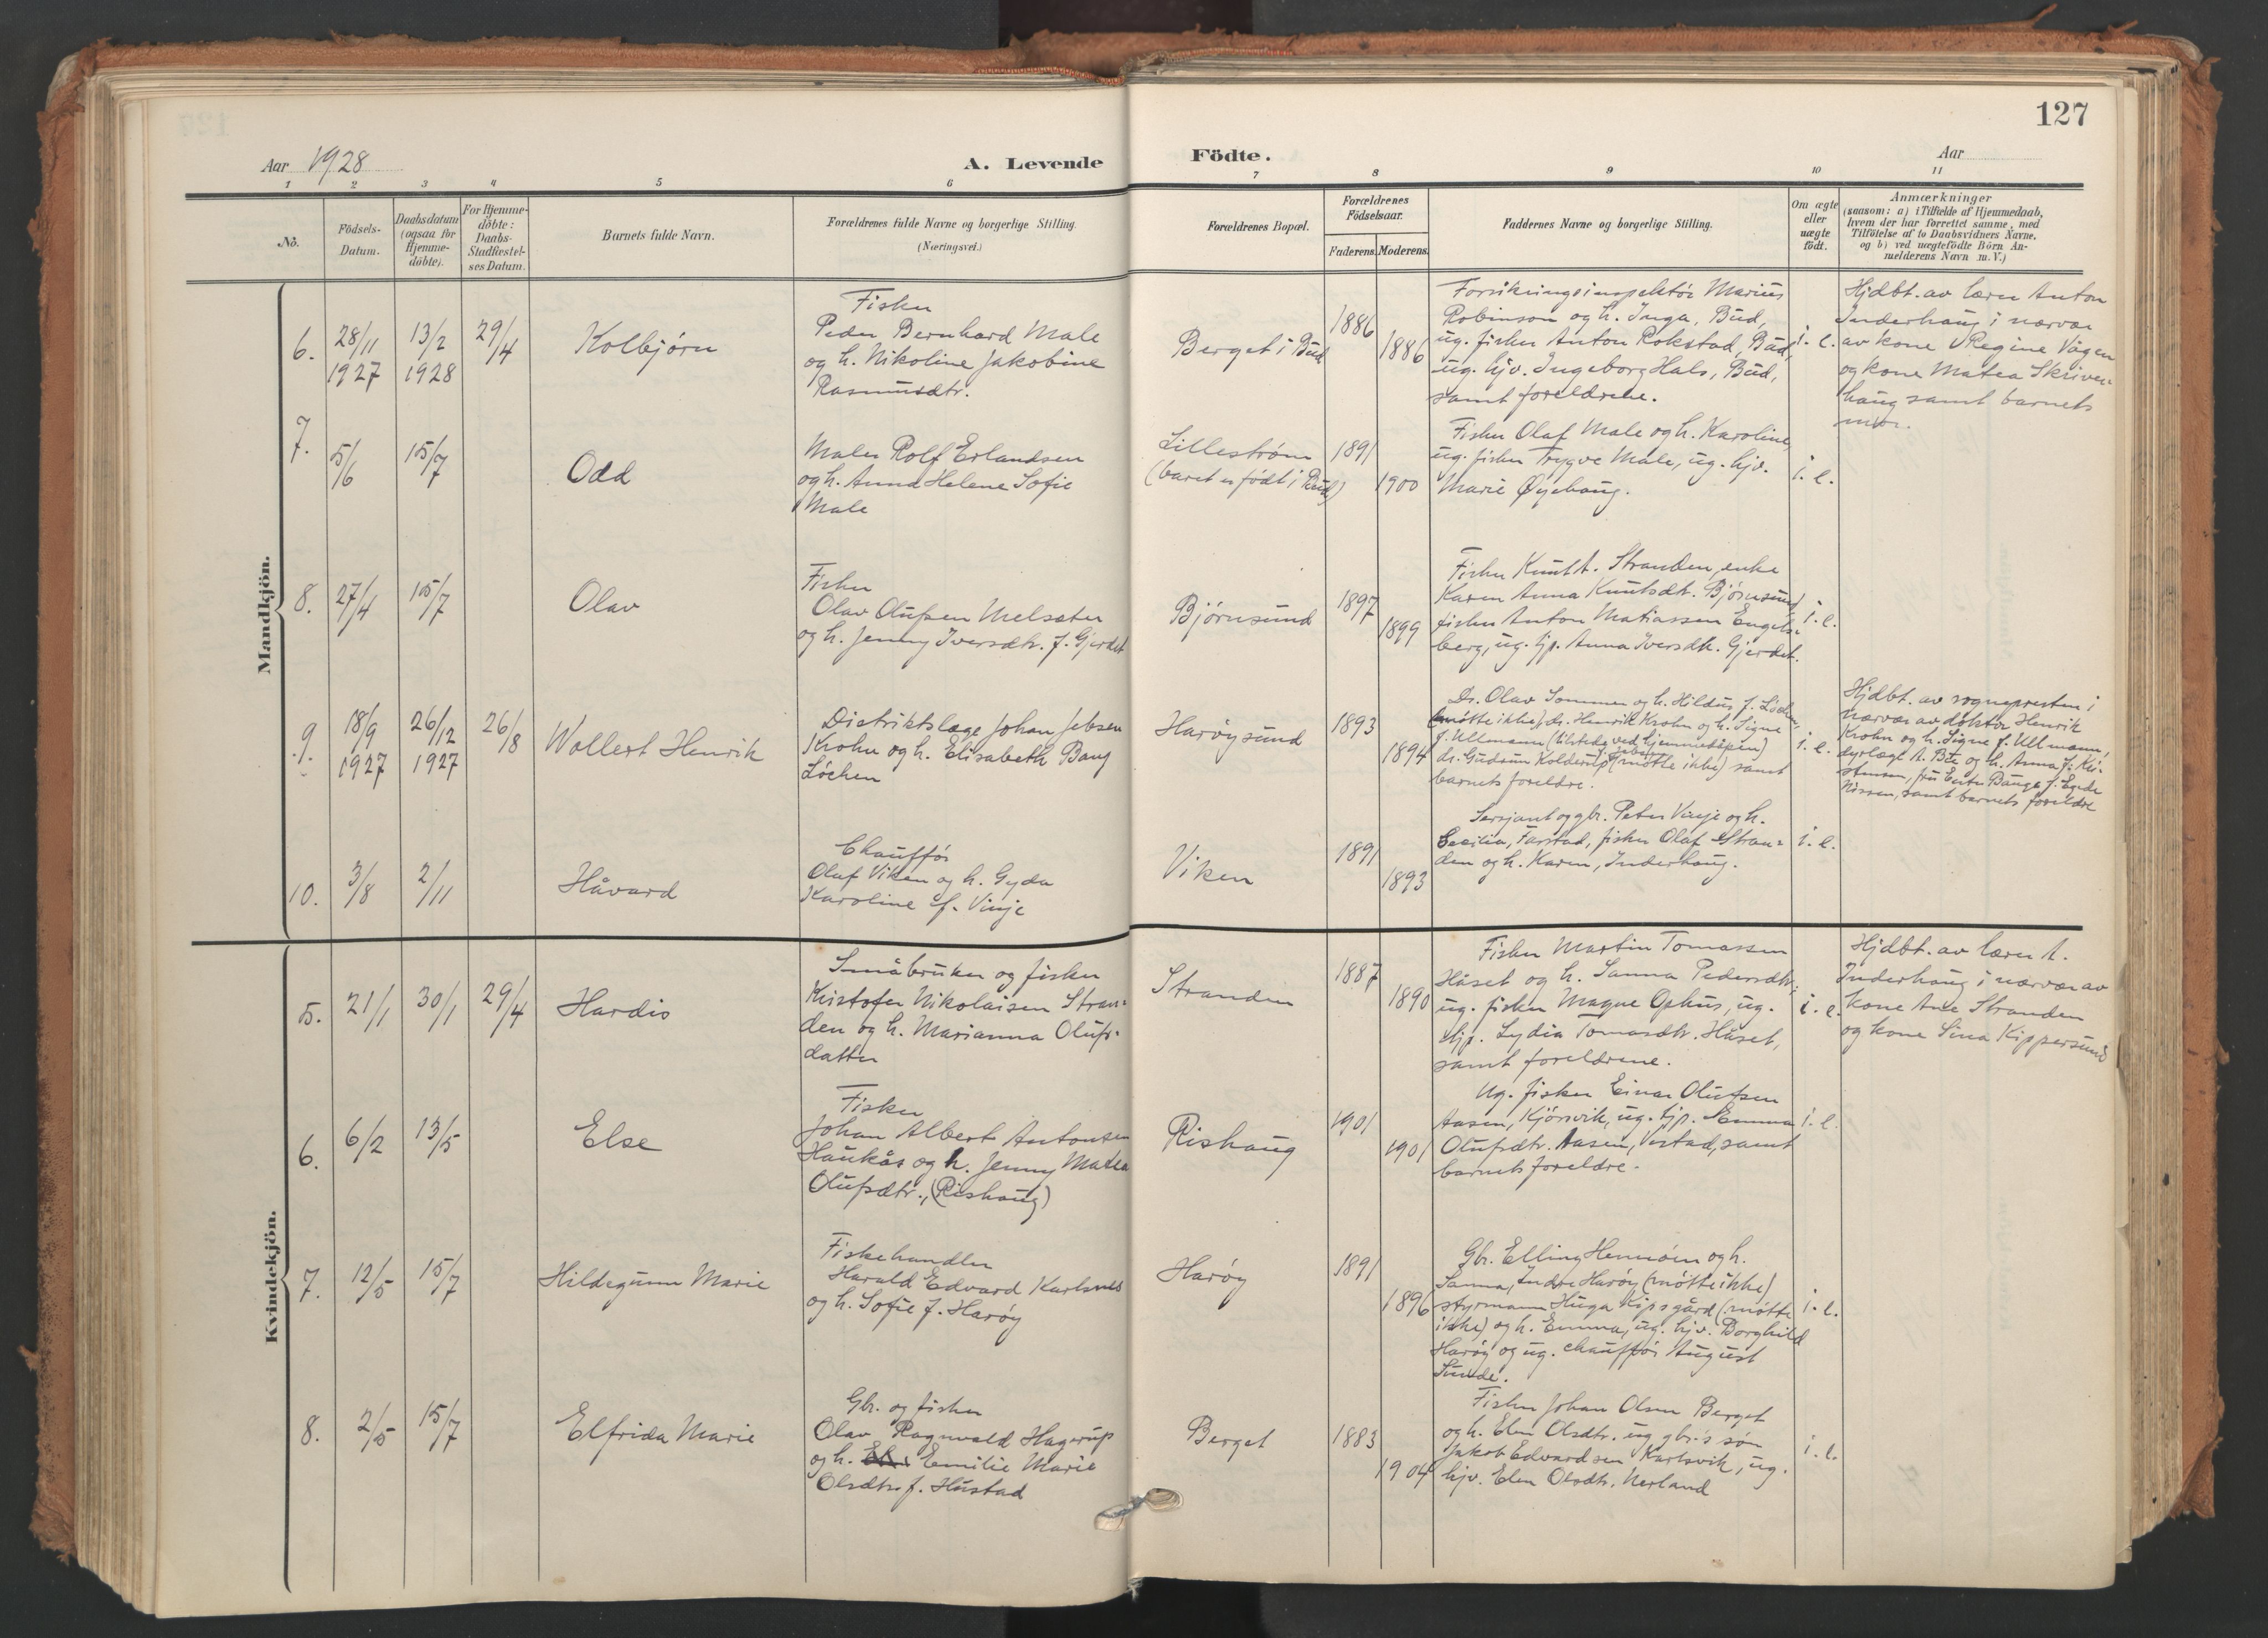 127
Aar 1928
A. Levende
Födte.
Aar
1 2 3 4 5 6 7 8 9 10 11
No.
Födsels-
Datum.
Daabsdatum
(ogsaa for
Hjemme-
döbte).
For Hjemme-
döbte:
Daabs-
Stadfestel-
ses Datum.
Barnets fulde Navn.
Forældrenes fulde Navne og borgerlige Stilling.
(Næringsvei.)
Forældrenes Bopæl.
Forældrenes
Födselsaar.
Faderens.
Moderens.
Faddernes Navne og borgerlige Stilling.
Om ægte
eller
uægte
födt.
Anmærkninger
(saasom: a) i Tilfælde af Hjemmedaab,
hvem der har forrettet samme, med
Tilföielse af to Daabsvidners Navne,
og b) ved uægtefödte Börn An-
melderens Navn m. V.)
Mandkjön.
6.
28/11
1927
13/2
1928
29/4
Kolbjørn
Fisker
Peder Bernhard Male
og h. Nikoline Jakobine
Rasmusdtr.
Berget i Bud
1886
1886
Forsikringsinspektør Marius
Robinson og h. Inga, Bud,
ug. fisker Anton Rokstad, Bud,
ug. hjv. Ingeborg Hals, Bud,
samt foreldrene.
i. e.
Hjdbt. av lærer Anton
Inderhaug i nærvær
av kone Regine Vågen
og kone Matea Skriven-
haug samt barnets
mor.
7.
5/6
15/7
Odd
Maler Rolf Erlandsen
og h. Anna Helene Sofie
Male
Lillestrøm
(barnet er født i Bud)
1891
1900
Fisker Olaf Male og h. Karoline,
ug. fisker Trygve Male, ug. hjv.
Marie Øyehaug.
i. e.
8.
27/4
15/7
Olav
Fisker
Olav Olufsen Melsæter
og h. Jenny Iversdtr. f. Gjerdet
Bjørnsund
1897
1899
Fisker Knut A. Stranden, enke
Karen Anna Knutsdt. Bjørnsund,
fisker Anton Matiassen Engels-
berg, ug. tjp. Anna Iversdtr. Gjerdet.
i. e.
9.
18/9
1927
26/12
1927
26/8
Wollert Henrik
Distriktslæge Johan Jebsen
Krohn og h. Elisabeth Bang
Løchen
Harøysund
1893
1894
Dr. Olav Sommer og h. Hildur f. Løchen,
(møtte ikke), dr. Henrik Krohn og h. Signe
f. Ullmann (tilstede ved hjemmedåpen)
dr. Gudrun Kolderup f. Jebsen (møtte ikke) samt
barnets foreldre.
i. e.
Hjdbt. av sognepresten i
nærvær av doktor Henrik
Krohn og h. Signe f. Ullmann,
dyrlæge A. Bæ og h. Anna f. Kri-
stensen, fru Ester Bauge f. Egede
Nissen, samt barnets foreldre
10.
3/8
2/11
Håvard
Chauffør
Olaf Viken og h. Gyda
Karoline f. Vinje
Viken
1891
1893
Sersjant og gbr. Peter Vinje og h.
Cecilia, Farstad, fisker Olaf Stran-
den og h. Karen, Inderhaug.
i. e.
Kvindekjön.
5.
21/1
30/1
29/4
Hardis
Småbruker og fisker
Kristofer Nikolaisen Stran-
den og h. Marianna Olufs-
datter
Stranden
1887
1890
Fisker Martin Tomassen
Håset og h. Sanna Pedersdtr.,
ug. fisker Magne Ophus, ug.
tjp. Lydia Tomasdtr. Håset,
samt foreldrene.
i. e.
Hjdbt. av lærer A.
Inderhaug i nærvær av
kone Ane Stranden
og kone Sina Kippersund
6.
6/2
13/5
Else
Fisker
Johan Albert Antonsen
Haukås og h. Jenny Matea
Olufsdtr., (Rishaug)
Rishaug
1901
1901
Ug. fisker Einar Olufsen
Aasen, Kjørsvik, ug. tjp. Emma
Olufsdtr. Aasen, Vestad, samt
barnets foreldre.
i. e.
7.
12/5
15/7
Hildegunn Marie
Fiskehandler
Harald Edvard Karlsnes
og h. Sofie f. Harøy
Harøy
1891
1896
Gbr. Elling Hennøen og h.
Sanna, Indre Harøy (møtte ikke)
styrmann Huga Kipsgård (møtte
ikke) og h. Emma, ug. hjv. Borghild
Harøy og ug. chauffør August
Sunde.
i. e.
8.
2/5
15/7
Elfrida Marie
Gbr. og fisker
Olav Ragnvald Hagerup
og h. Emilie Marie
Olsdtr. f. Hustad
Berget
1883
1904
Fisker Johan Olsen Berget
og h. Elen Olsdtr. ug gbr.'s søn
Jakob Edvardsen Karlsvik, ug.
hjv. Elen Olsdtr. Nerland
i. e.